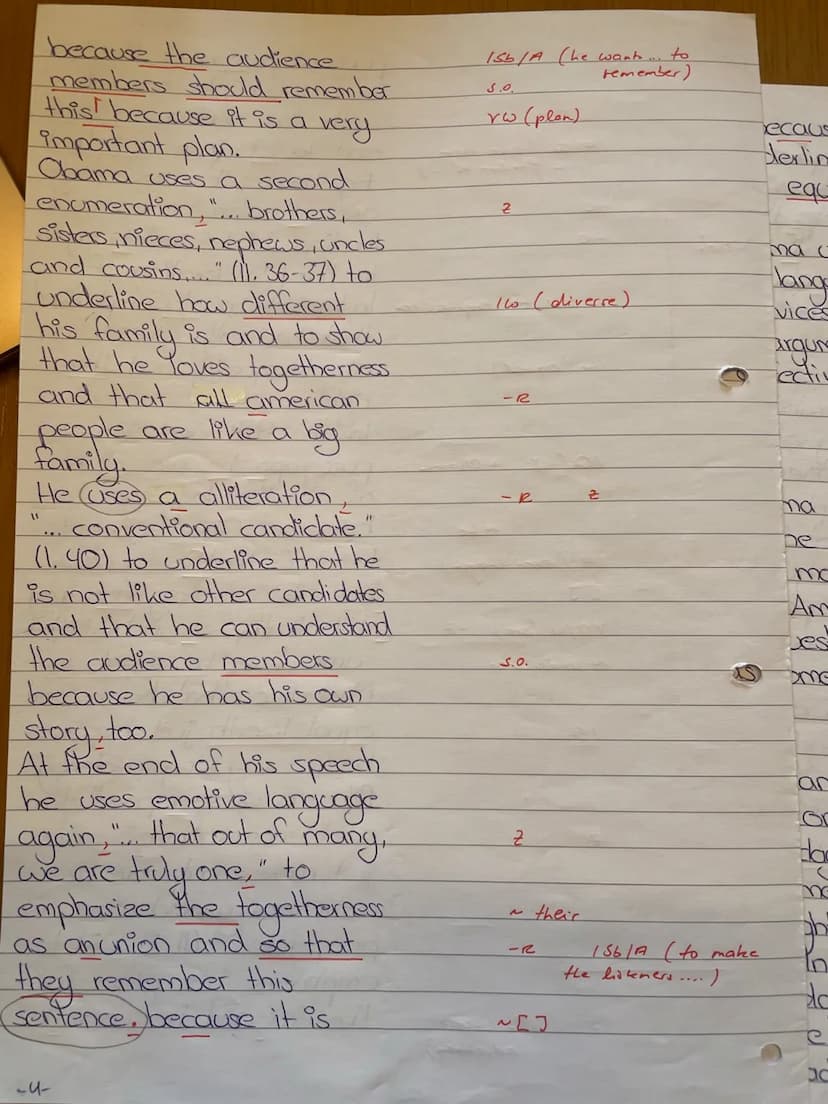 because the audience 1Sb/A (he wants... to
members should remember remember)
this! because it is a very s.o.
important plan. rw (plan)
Obama uses a second
enumeration,"... brothers, z
sisters, nieces, nephews, uncles
and cousins,..." (ll. 36-37) to
underline how different 1w (diverse)
his family is and to show
that he loves togetherness
and that all american -R
people are like a big
family.
He uses a alliteration, -R z
"... conventional candidate."
(l. 40) to underline that he
is not like other candidates
and that he can understand
the audience members s.o.
because he has his own
story, too.
At the end of his speech
he uses emotive language
again,"... that out of many, z
we are truly one," to
emphasize the togetherness ~ their
as anunion and so that -R 1Sb/A (to make
they remember this the listeners....)
sentence, because it is ~[ ]
-4-
ecaus
derlin
equ
ma
lang
vices
argum
ectiv
ma
he
mo
Am
es
ome
an
or